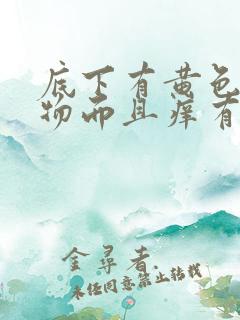 底下有黄色
物而且痒有
金尋者.
未经同意禁止转载